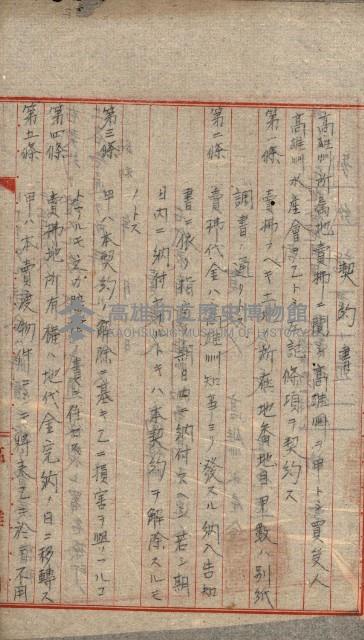 契約書
高雄州所有地賣拂ニ關シ高雄州ヲ甲トシ買受人
高雄州水産會ヲ乙トシ左記條項ヲ契約ス
第一條 賣拂フヘキ土地ノ所在地番地目甲數ハ別紙
調書ノ通リ
第二條 賣拂代金ハ高雄州知事ヨリ發スル納入告知
書ニ依リ指定ノ期日内ニ納付スヘシ若シ期
日内ニ納付セサルトキハ本契約ヲ解除スルモ
ノトス
第三條 甲ハ本契約ノ解除ニ基キ乙ニ損害ヲ與フルコ
トアルモ之カ責ニ任セス
第四條 賣拂地所有權ハ地代金完納ノ日ニ移轉ス
第五條 甲ハ本賣渡物件ニシテ將來乙ニ於テ不用
高雄市立歷史博物館
KAOHSIUNG MUSEUM OF HISTORY